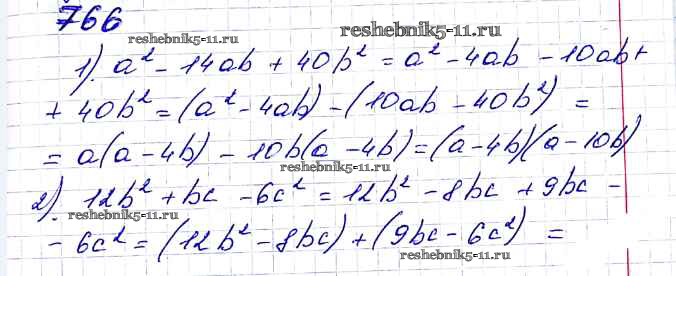 766
reshebnik5-11.ru
reshebnik5-11.ru
1). a² - 14ab + 40b² = a² - 4ab - 10ab +
+ 40b² = (a² - 4ab) - (10ab - 40b²) =
= a(a - 4b) - 10b(a - 4b) = (a - 4b)(a - 10b)
reshebnik5-11.ru
2). 12b² + bc - 6c² = 12b² - 8bc + 9bc -
reshebnik5-11.ru
- 6c² = (12b² - 8bc) + (9bc - 6c²) =
reshebnik5-11.ru